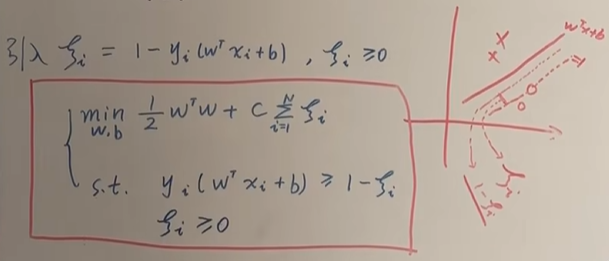 引入 ξᵢ = 1 - yᵢ(wᵀxᵢ+b) , ξᵢ ≥0
min w,b 1/2 wᵀw + C ∑ᵢ₌₁ᴺ ξᵢ
s.t. yᵢ(wᵀxᵢ+b) ≥ 1-ξᵢ
ξᵢ ≥0
wᵀx+b